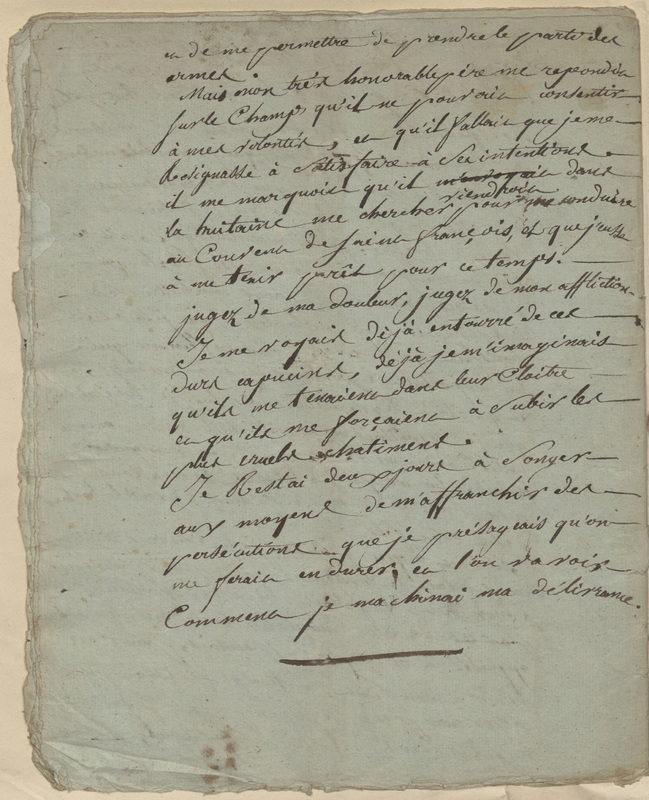 et de me permettre de prendre le parti des
armes.
Mais mon très honorable père me repondit
sur le Champ qu'il ne pouvait consentir
à mes volontés, et qu'il fallait que je me
Resignasse à Satisfaire à Ses intentions.
il me marquoit qu'il viendroit dans
la huitaine me chercher pour me conduire
au Couvent de Saint françois, et que j'eusse
à me tenir prêt pour ce temps.
jugez de ma douleur, jugez de mon affliction.
Je me voyais déjà entourré de ces
durs capucins, déjà je m'imaginais
qu'ils me tenaient dans leur Cloitre
et qu'ils me forçaient à Subir les
plus cruels chatiments.
Je Restai deux jours à Songer
aux moyens de m'affranchir des
persécutions que je présageais qu'on
me ferait endurer, et l'on va voir
Comment je machinai ma délivrance.